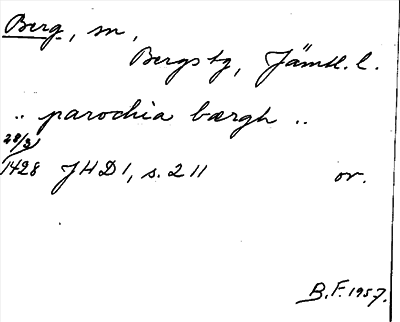 Berg, sn,
Bergs tg, Jämtl. l.
.. parochia bærgh ..
28/3
1428 JHD 1, s. 211 or.
B.F. 1957.